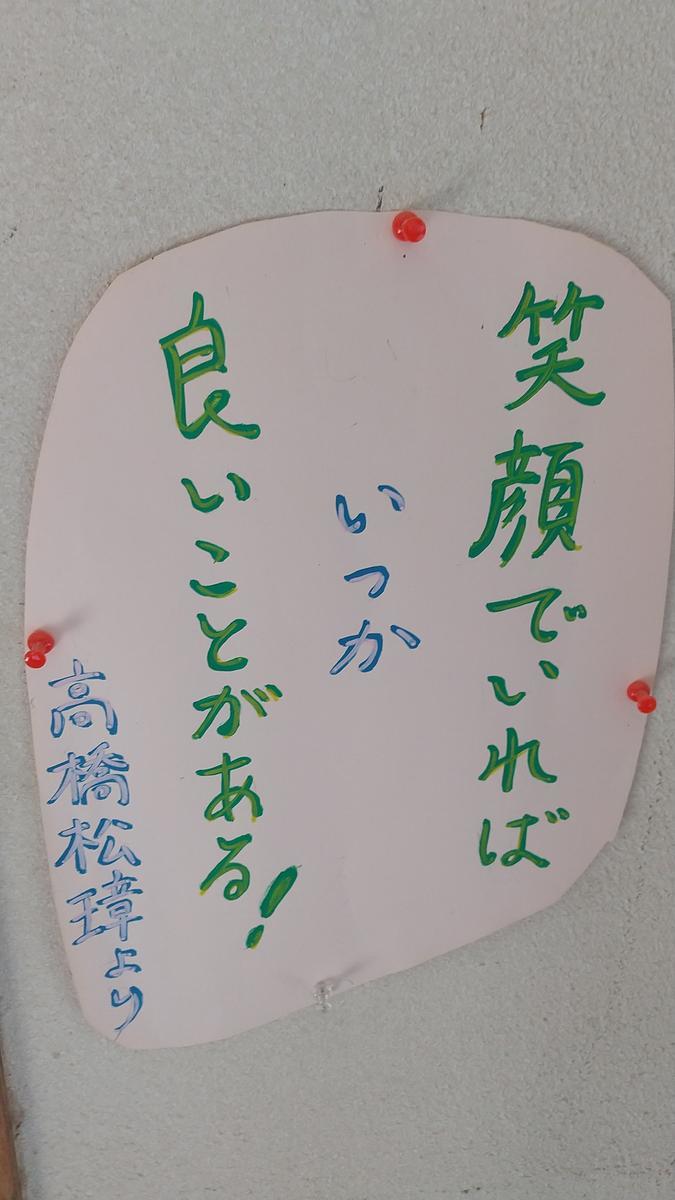 笑顔でいれば
いつか
良いことがある!
高橋松璋より